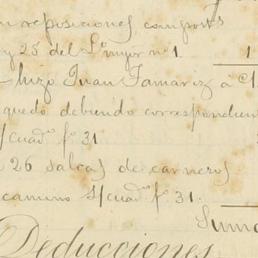 reposiciones
y 25 del L.º mayor nº 1 1
hizo Juan Famariz a c/
quedó debiendo correspondien
S/cuad.º fº 31
26 de carneros
camino S/ cuad.º fº 31.
Suma
Deducciones